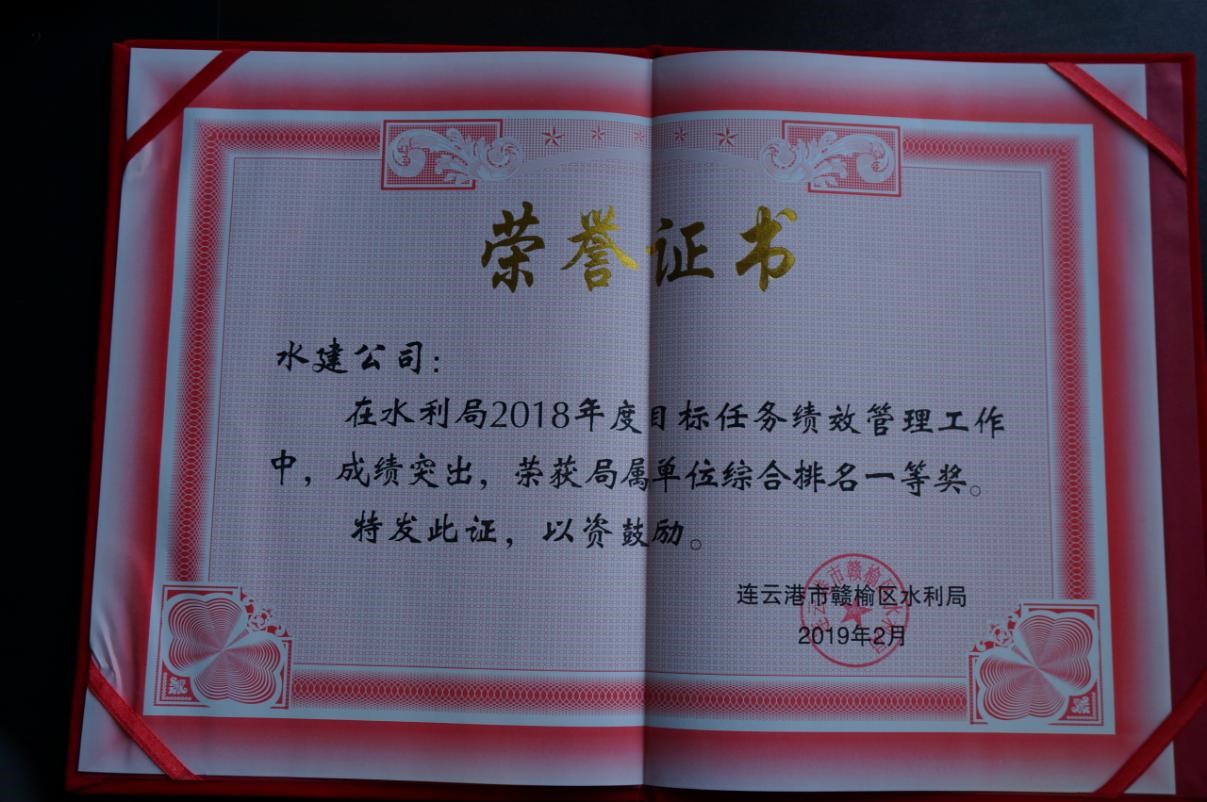 荣誉证书
水建公司：
在水利局2018年度目标任务绩效管理工作
中，成绩突出，荣获局属单位综合排名一等奖。
特发此证，以资鼓励。
连云港市赣榆区水利局
2019年2月
连云港市赣榆区水利局